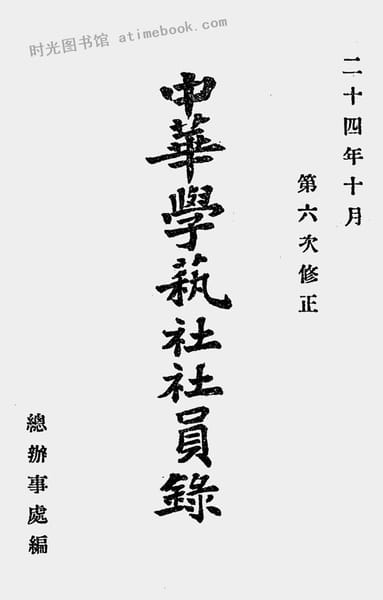 时光图书馆 atimebook.com
二十四年十月
第六次修正
中華學蓺社社員錄
總辦事處編